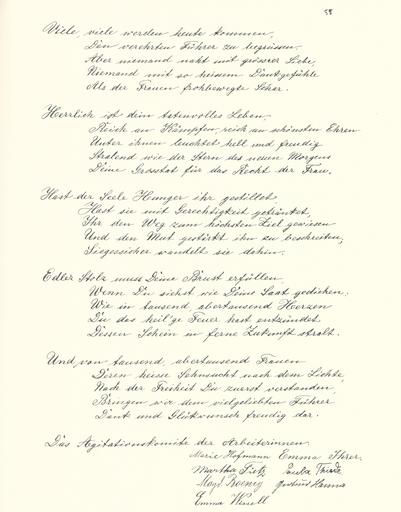 58
Viele, viele werden heute kommen,
Den verehrten Führer zu begrüssen.
Aber niemand naht mit grösserer Liebe,
Niemand mit so heissem Dankgefühle
Als der Frauen frohbewegte Schar.
Herrlich ist dein tatenvolles Leben,
Reich an Kämpfen, reich an schönsten Ehren
Unter ihnen leuchtet hell und freudig
Stralend wie der Stern des neuen Morgens
Deine Grosstat für das Recht der Frau.
Hast der Seele Hunger ihr gestillet,
Hast sie mit Gerechtigkeit getränket,
Ihr den Weg zum höchsten Ziel gewiesen
Und den Mut gestärkt ihn zu beschreiten,
Siegessicher wandelt sie dahin.
Edler Stolz muss Deine Brust erfüllen,
Wenn Du siehst wie Deine Saat gediehen,
Wie in tausend, abertausend Herzen
Du das heil'ge Feuer hast entzündet
Dessen Schein in ferne Zukunft stralt.
Und von tausend, abertausend Frauen
Deren heisse Sehnsucht nach dem Lichte,
Nach der Freiheit Du zuerst verstanden
Bringen wir dem vielgeliebten Führer
Dank und Glükwunsch freudig dar.
Das Agitationskomite der Arbeiterinnen.
Marie Hofmann Emma Ihrer.
Martha Tietz Paula Thiede
Hanna
Emma